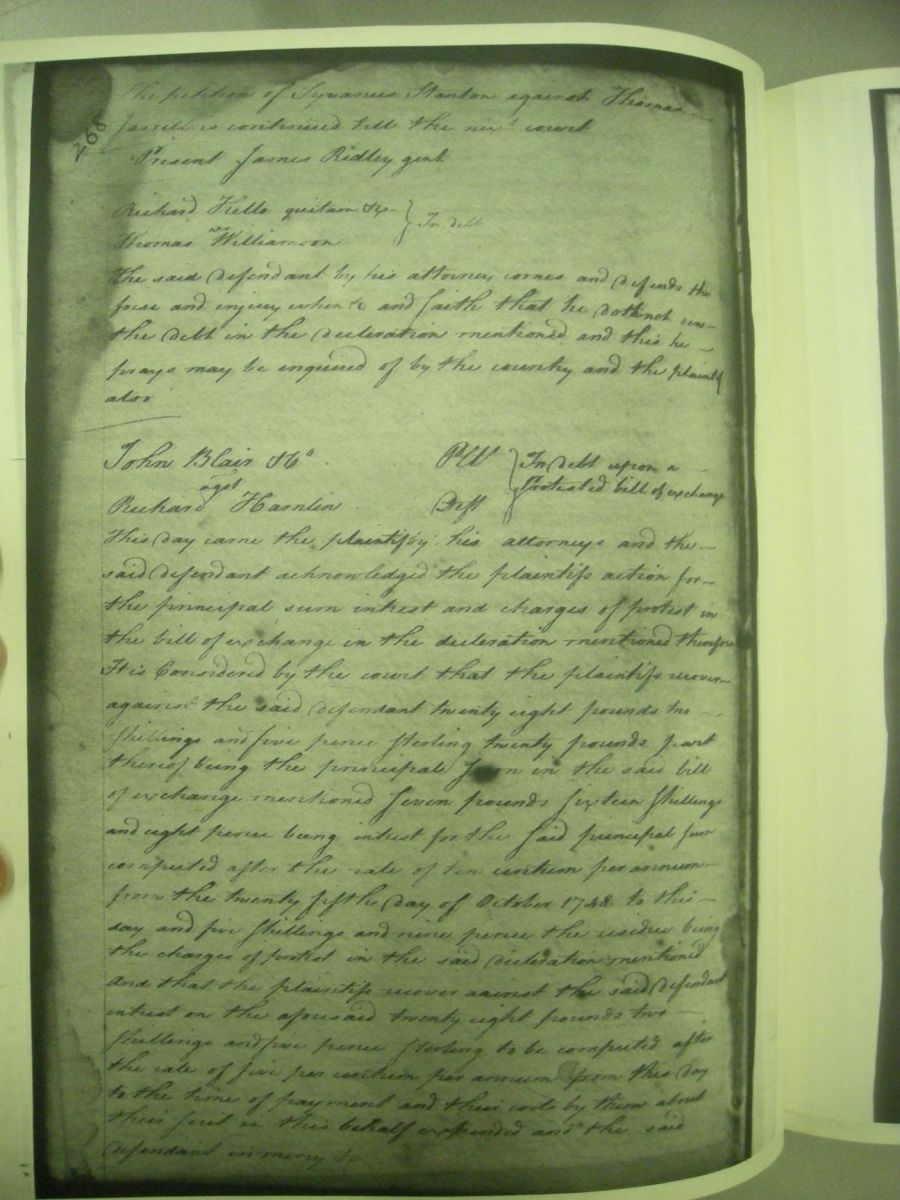 268
The petition of Sylvanus Stanton against Thomas
Jarrell is continued till the next court
Present James Ridley gent
Richard Kello quitam &c } In debt
vs
Thomas Williamson
The said defendant by his attorney comes and defends the
force and injury when &c and saith that he doth not owe
the debt in the decleration mentioned and this he
prays may be enquired of by the country and the plaintif
also
John Blair & Co Plts } In debt upon a
agst Protested bill of exchange
Richard Hamlin Deft
This day came the plaintifs by his attorneys and the
said defendant acknowledged the plaintifs action for
the principal sum intrest and charges of protest in
the bill of exchange in the decleration mentioned therefore
It is Considered by the court that the plaintifs recover
against the said defendant twenty eight pounds two
shillings and five pence sterling twenty pounds part
thereof being the principal sum in the said bill
of exchange mentioned seven pounds sixteen shillings
and eight pence being intrest for the said principal sum
computed after the rate of ten centum per annum
from the twenty fifth day of October 1748 to this
day and five shillings and nine pence the residue being
the charges of protest in the said decleration mentioned
And that the plaintifs recover against the said defendant
intrest on the aforesaid twenty eight pounds two
shillings and five pence sterling to be computed after
the rate of five per centum per annum from this day
to the time of payment and their costs by them about
their suit in this behalf expended and the said
defendant in mercy &c